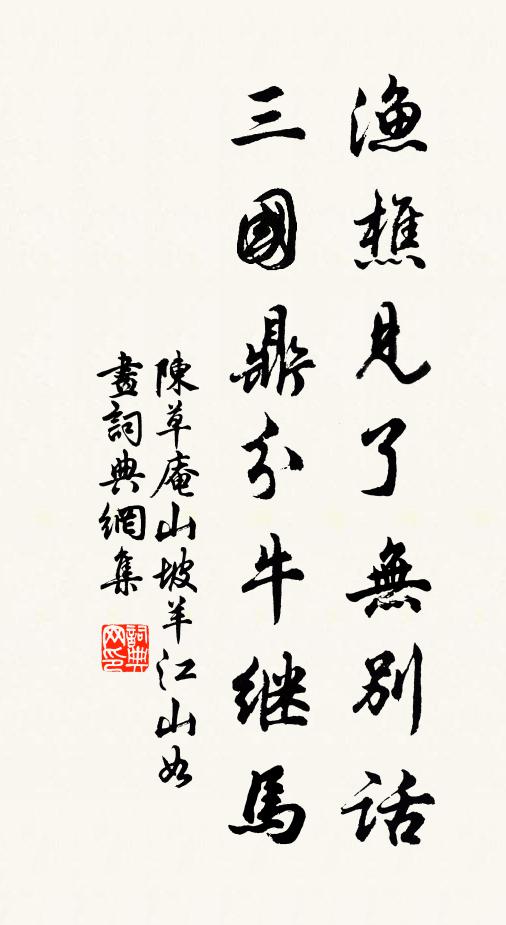 漁樵見了無別話
三國鼎分牛继馬
陳草庵山坡羊江山如
畫詞典網集
詞典
网印